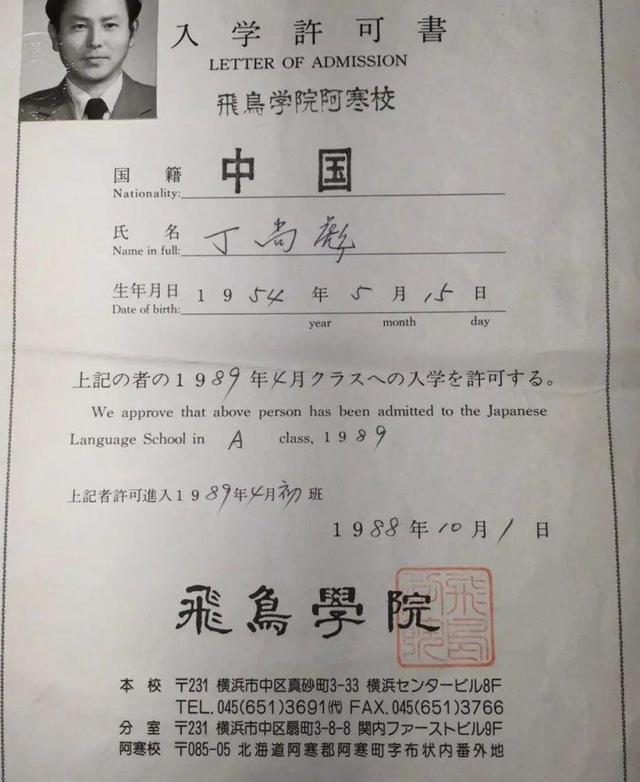 入学許可書
LETTER OF ADMISSION
飛鳥学院阿寒校
国籍 中国
Nationality:
氏名 丁尚彪
Name in full:
生年月日 1954年5月15日
Date of birth: year month day
上記の者の1989年4月クラスへの入学を許可する。
We approve that above person has been admitted to the Japanese
Language School in A class, 1989
上記者許可進入1989年4月初班
1988年10月1日
飛鳥學院
本校 〒231 横浜市中区真砂町3-33 横浜センタービル8F
TEL.045(651)3691(代) FAX.045(651)3766
分室 〒231 横浜市中区扇町3-8-8 関内ファーストビル9F
阿寒校 〒085-05 北海道阿寒郡阿寒町字布伏内番外地